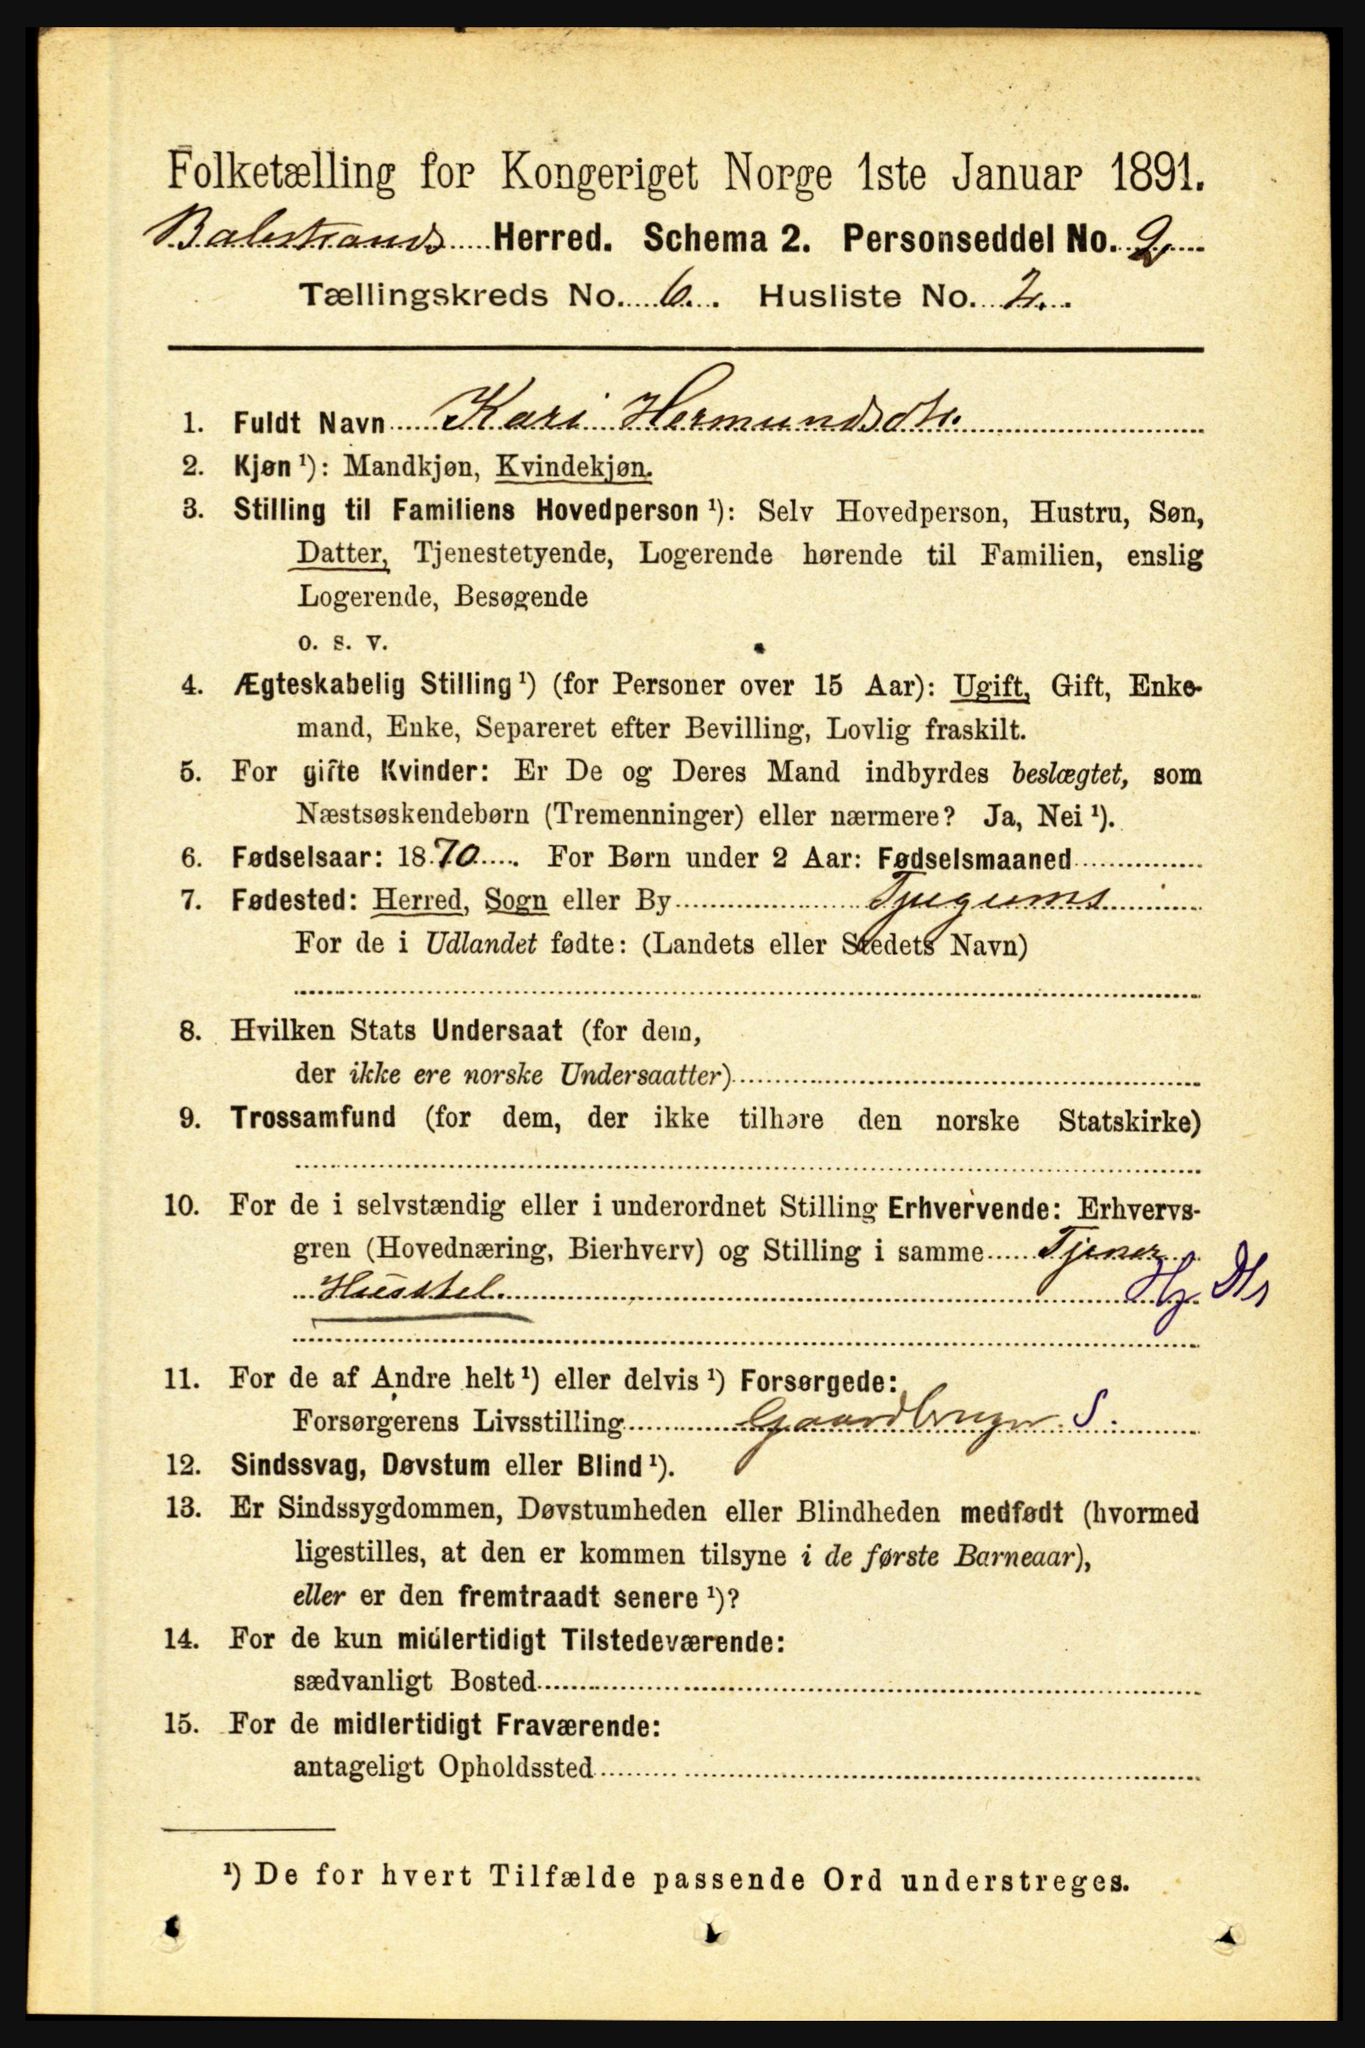 Folketælling for Kongeriget Norge 1ste Januar 1891.
Balestrands Herred. Schema 2. Personseddel No. 2
Tællingskreds No. 6. Husliste No. 2.
1. Fuldt Navn Kari Hermundsdtr.
2. Kjøn ¹): Mandkjøn, Kvindekjøn.
3. Stilling til Familiens Hovedperson ¹): Selv Hovedperson, Hustru, Søn,
Datter, Tjenestetyende, Logerende hørende til Familien, enslig
Logerende, Besøgende
o. s. v.
4. Ægteskabelig Stilling ¹) (for Personer over 15 Aar): Ugift, Gift, Enke-
mand, Enke, Separeret efter Bevilling, Lovlig fraskilt.
5. For gifte Kvinder: Er De og Deres Mand indbyrdes beslægtet, som
Næstsøskendebørn (Tremenninger) eller nærmere? Ja, Nei ¹).
6. Fødselsaar: 1870. For Børn under 2 Aar: Fødselsmaaned
7. Fødested: Herred, Sogn eller By Tjugums
For de i Udlandet fødte: (Landets eller Stedets Navn)
8. Hvilken Stats Undersaat (for dem,
der ikke ere norske Undersaatter)
9. Trossamfund (for dem, der ikke tilhøre den norske Statskirke)
10. For de i selvstændig eller i underordnet Stilling Erhvervende: Erhvervs-
gren (Hovednæring, Bierhverv) og Stilling i samme Tjener
Husstel. Hz
11. For de af Andre helt ¹) eller delvis ¹) Forsørgede:
Forsørgerens Livsstilling Gaardbruger S.
12. Sindssvag, Døvstum eller Blind ¹).
13. Er Sindssygdommen, Døvstumheden eller Blindheden medfødt (hvormed
ligestilles, at den er kommen tilsyne i de første Barneaar),
eller er den fremtraadt senere ¹)?
14. For de kun midlertidigt Tilstedeværende:
sædvanligt Bosted
15. For de midlertidigt Fraværende:
antageligt Opholdssted
¹) De for hvert Tilfælde passende Ord understreges.